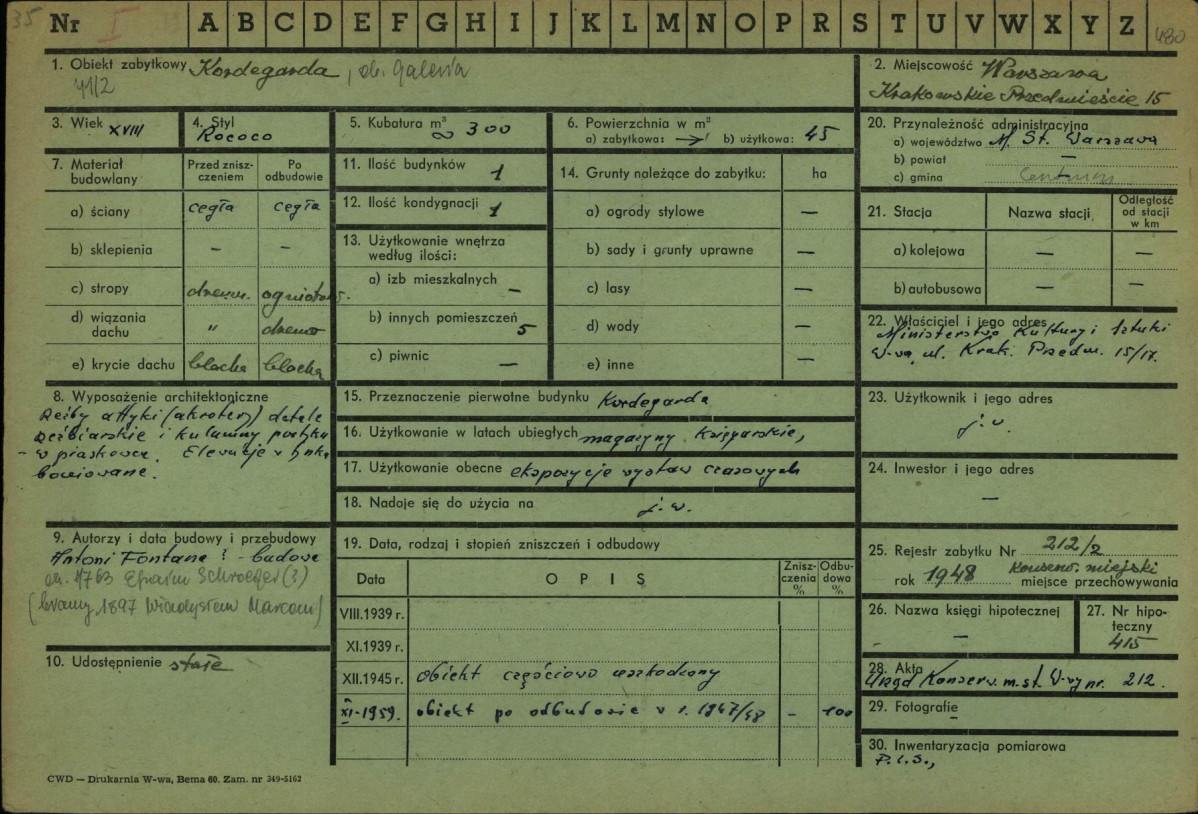 35
Nr I A B C D E F G H I J K L M N O P R S T U V W X Y Z 480
1. Obiekt zabytkowy Kordegarda, ob. Galeria
41/2
2. Miejscowość Warszawa
Krakowskie Przedmieście 15
3. Wiek XVIII
4. Styl Rococo
5. Kubatura m³ ∞ 300
6. Powierzchnia w m²
a) zabytkowa: b) użytkowa: 45
7. Materiał budowlany
Przed zniszczeniem
Po odbudowie
a) ściany cegła cegła
b) sklepienia – –
c) stropy drewn. ogniotrw.
d) wiązania dachu " drewno
e) krycie dachu blacha blacha
8. Wyposażenie architektoniczne
Rzeźby attyki (akroterz) detale
rzeźbiarskie i kolumny portyku
w piaskowcu. Elewacje w tynku
boniowane.
9. Autorzy i data budowy i przebudowy
Antoni Fontana ? - budowa
ok. 1763 Efraim Schroeger (?)
(bramy 1897 Władysław Marconi)
10. Udostępnienie stałe
11. Ilość budynków 1
12. Ilość kondygnacji 1
13. Użytkowanie wnętrza
według ilości:
a) izb mieszkalnych –
b) innych pomieszczeń 5
c) piwnic –
14. Grunty należące do zabytku: ha
a) ogrody stylowe –
b) sady i grunty uprawne –
c) lasy –
d) wody –
e) inne –
15. Przeznaczenie pierwotne budynku Kordegarda
16. Użytkowanie w latach ubiegłych magazyny księgarskie,
17. Użytkowanie obecne ekspozycje wystaw czasowych
18. Nadaje się do użycia na j. w.
19. Data, rodzaj i stopień zniszczeń i odbudowy
Data O P I S Zniszczenia % Odbudowa %
VIII.1939 r.
XI.1939 r.
XII.1945 r. obiekt częściowo uszkodzony
XI-1959. obiekt po odbudowie w r. 1947/48 – 100
20. Przynależność administracyjna
a) województwo M. St. Warszawa
b) powiat –
c) gmina –
21. Stacja Nazwa stacji Odległość od stacji w km
a) kolejowa – –
b) autobusowa – –
22. Właściciel i jego adres
Ministerstwo Kultury i Sztuki
W-wa, ul. Krak. Przedm. 15/17.
23. Użytkownik i jego adres
j. w.
24. Inwestor i jego adres
–
25. Rejestr zabytku Nr 212/2
rok 1948 konserw. miejski
miejsce przechowywania
26. Nazwa księgi hipotecznej
–
27. Nr hipoteczny
415
28. Akta
Urząd Konserw. m. st. W-wy nr. 212.
29. Fotografie
–
30. Inwentaryzacja pomiarowa
P.I.S.,
CWD — Drukarnia W-wa, Bema 60. Zam. nr 349-5162